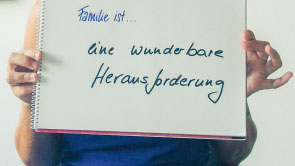 Familie ist...
eine wunderbare
Herausforderung